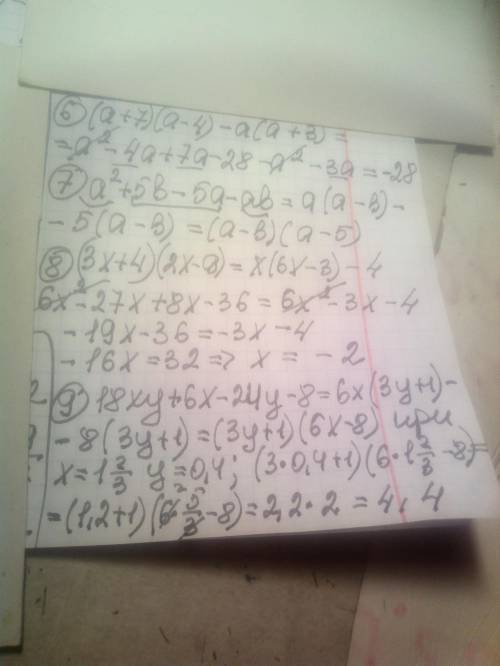 6) (a+7)(a-4)-a(a+3)=
=a²-4a+7a-28-a²-3a=-28
7) a²+5b-5a-ab=a(a-b)-
-5(a-b)=(a-b)(a-5)
8) (3x+4)(2x-9)=x(6x-3)-4
6x²-27x+8x-36=6x²-3x-4
-19x-36=-3x-4
-16x=32=>x=-2
9) 18xy+6x-24y-8=6x(3y+1)-
-8(3y+1)=(3y+1)(6x-8) при
x=1 2/3 y=0,4; (3·0,4+1)(6·1 2/3-8)=
=(1,2+1)(6·5/3-8)=2,2·2=4,4